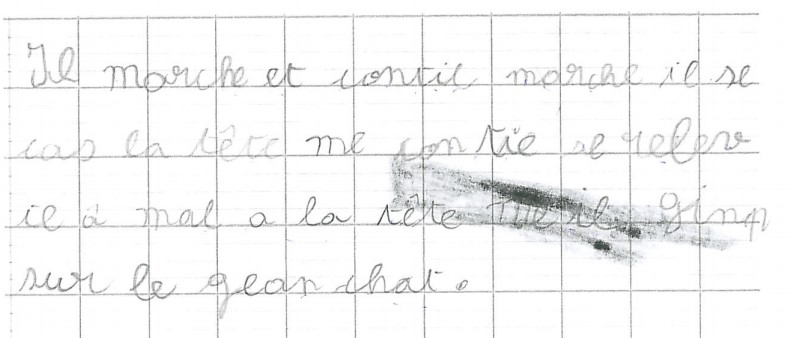 Il marche et contil marche il se
cas la tête me con tié se relev
il à mal a la tête il ginp
sur le gean chat.